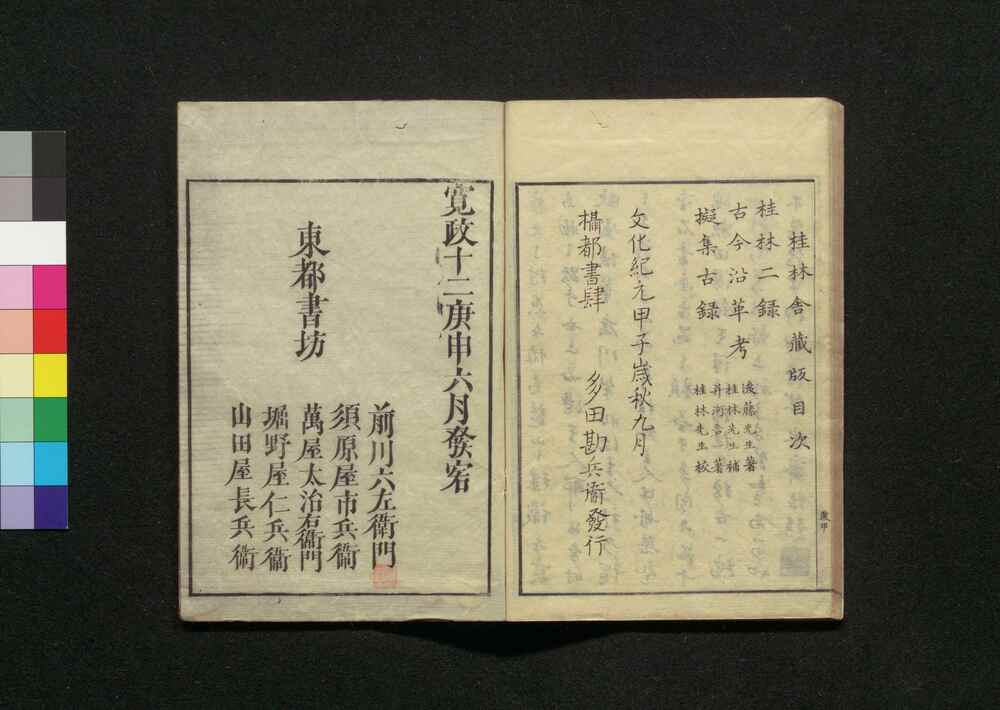 桂林舎藏版目次
桂林二録
古今沿革考
後藤先生著
桂林先生補
擬集古録
桂林先生校
文化紀元甲子歳秋九月
攝都書肆　多田勘兵衛發行
寛政十二庚申六月發
東都書坊
前川六左衛門
須原屋市兵衛
萬屋太治右衛門
堀野屋仁兵衛
山田屋長兵衛